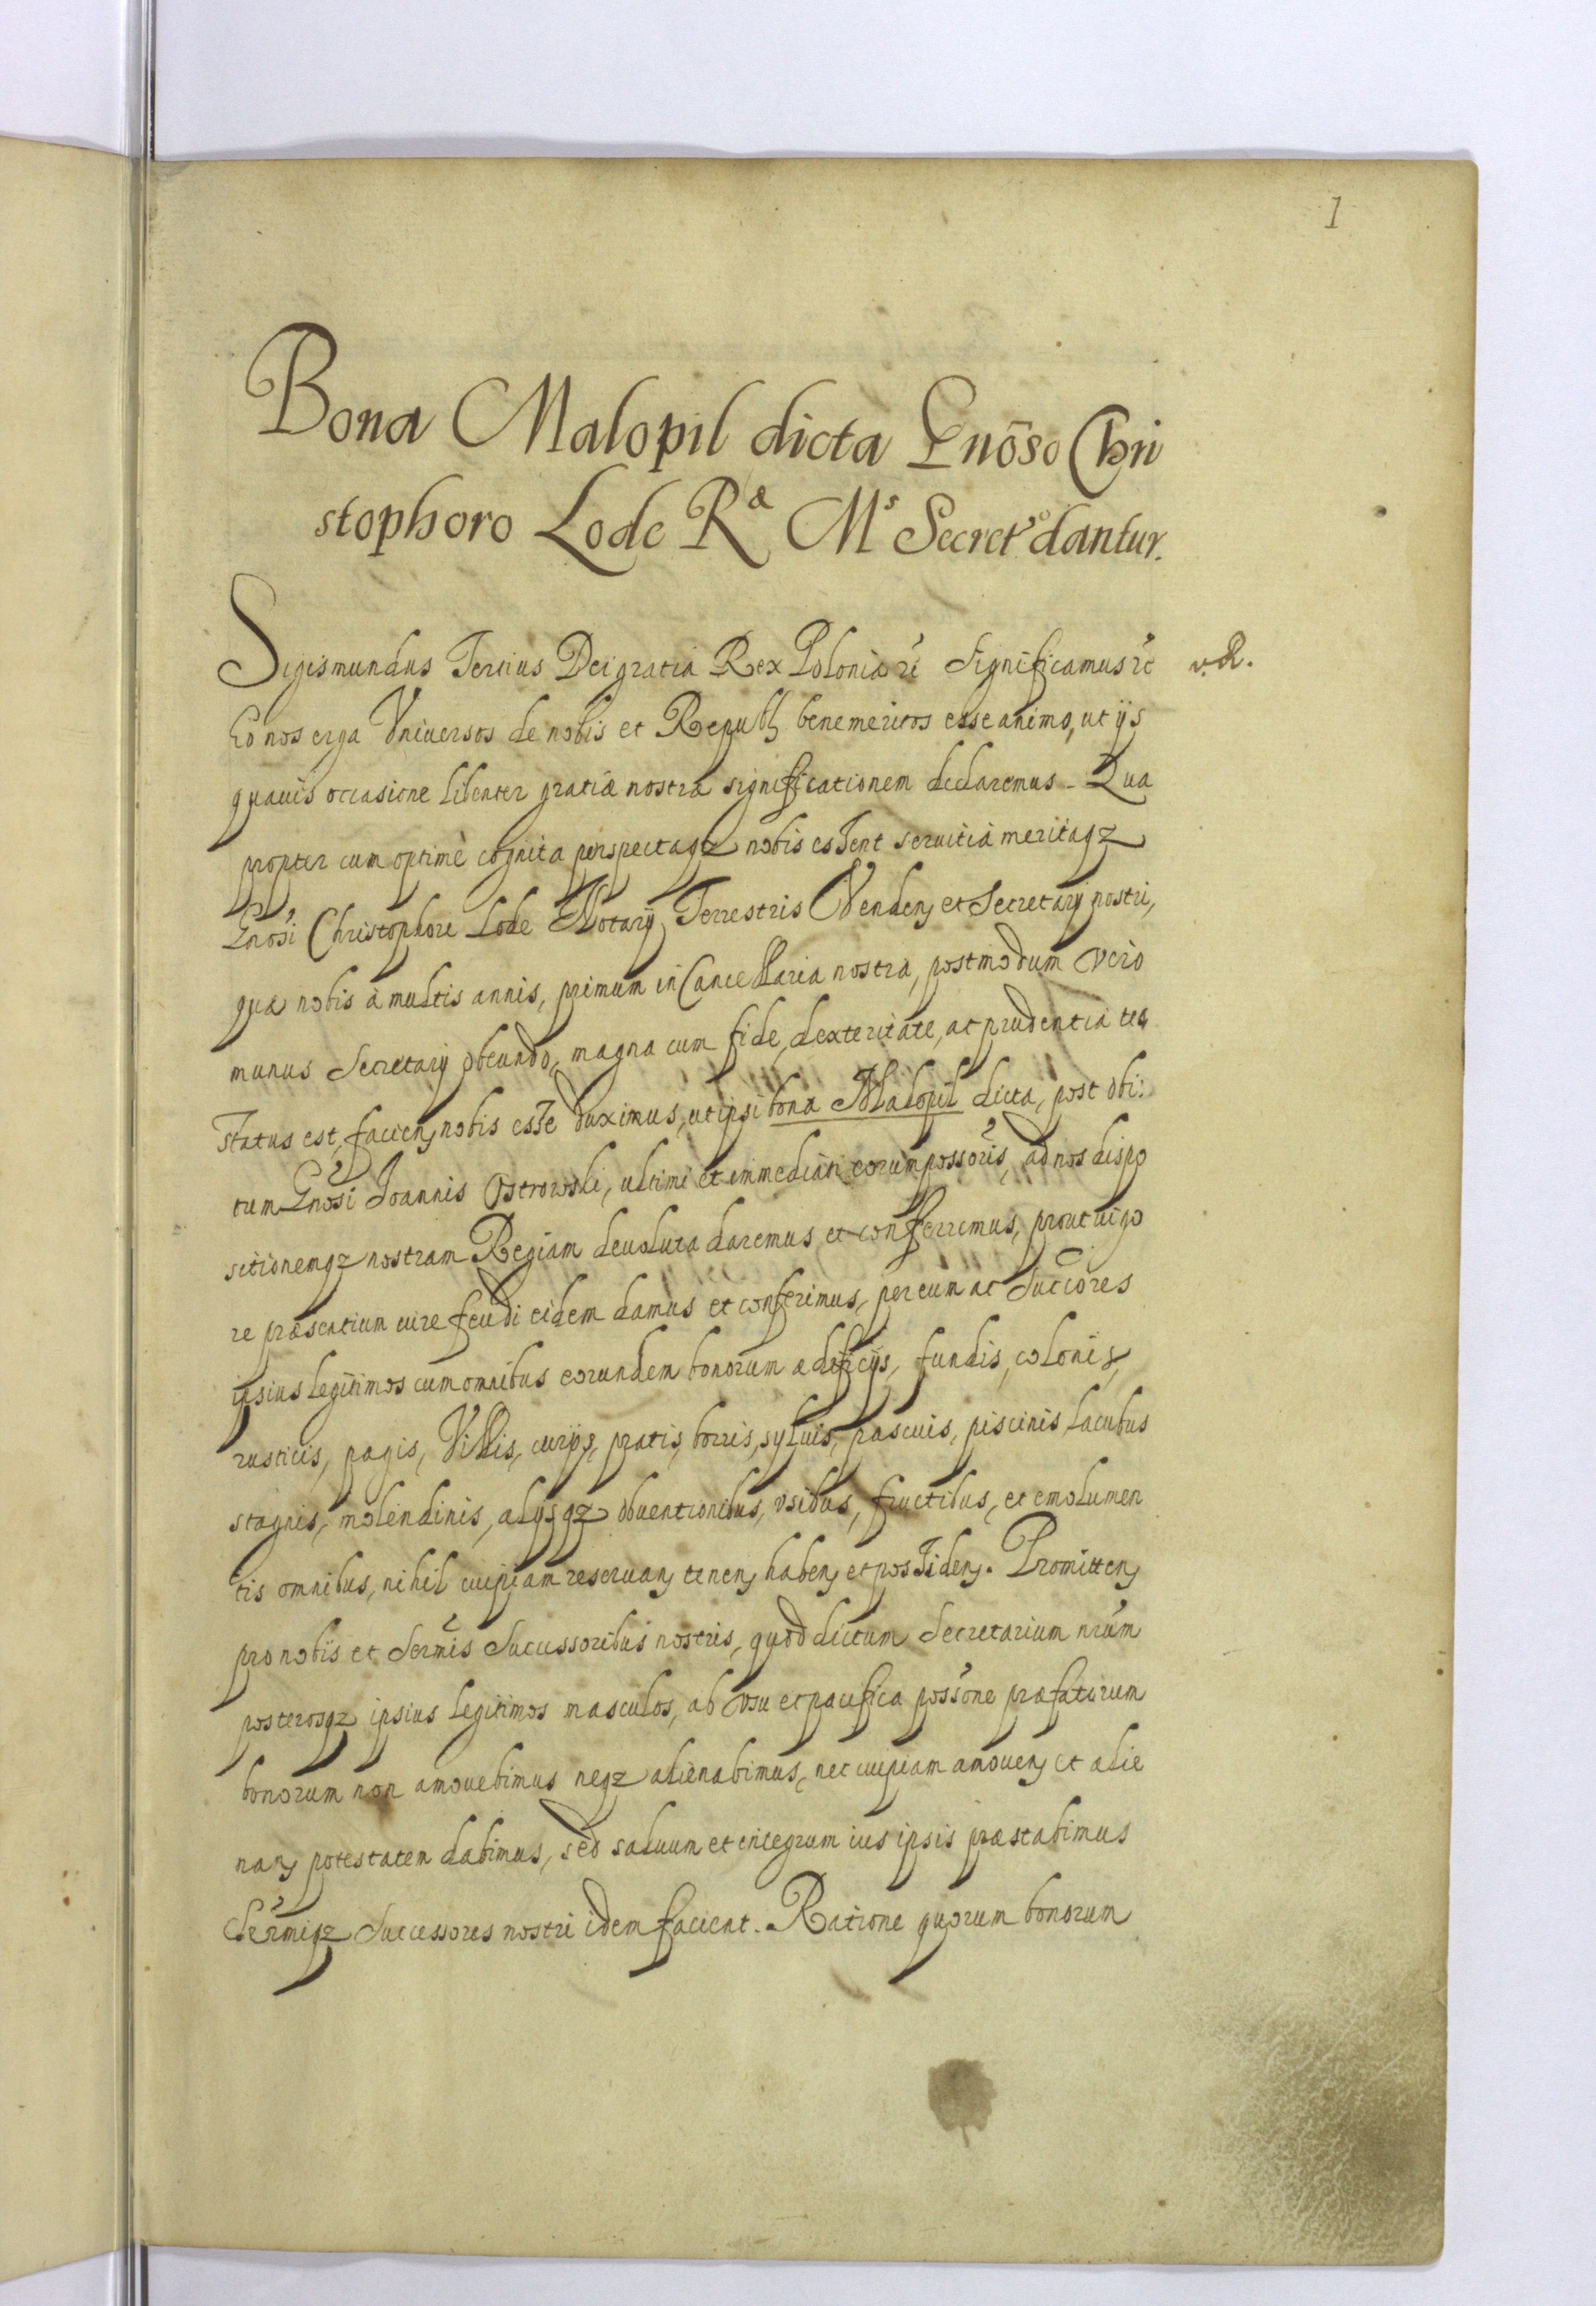 1
Bona Malopil dicta Gnōso Chri
stophoro Lode Rᵃᵉ Mˢ Secretº dantur.
Sigismundus Tertius Dei gratia Rex Poloniæ rc̃ Significamus rc̃
v. R.
Eo nos erga Vniuersos de nobis et Republ benemeritos esse animo, ut ijs
quauis occasione libenter gratiæ nostræ significationem declaremus - Qua
propter cum optimè cognita perspectaqz nobis essent seruitia meritaqz
Gnosi Christophori Lode Notarij Terrestris Venden et Secretarij nostri,
quæ nobis à multis annis, primum in Cancellaria nostra, postmodum verò
munus Secretarij obeundo, magna cum fide, dexteritate, ac prudentia te
status est, facien nobis esse duximus, ut ipsi bona Malopil dicta, post obi:
tum Gnosi Joannis Ostrowski, ultimi et immediati eorum possoris, ad nos dispo
sitionemqz nostram Regiam deuoluta daremus et conferremus, prout uigo
re præsentium iure feudi eidem damus et conferimus, per eum ac Succores
ipsius legitimos cum omnibus eorundem bonorum ædificijs, fundis, colonis,
rusticis, pagis, Villis, curijs, pratis, borris, syluis, pascuis, piscinis, lacubus
stagnis, molendinis, alijsqz obuentionibus, vsibus, fructibus, et emolumen
tis omnibus, nihil cuipiam reseruan tenen haben et possiden. Promitten
pro nobis et Sermis Successoribus nostris, quod dictum Secretarium nrum
posterosqz ipsius legitimos masculos, ab vsu et pacifica possone præfatorum
bonorum non amouebimus neqz alienabimus, nec cuipiam amouen et alie
nan potestatem dabimus, sed saluum et integrum ius ipsis præstabimus
Sermiqz Successores nostri idem facient. Ratione quorum bonorum